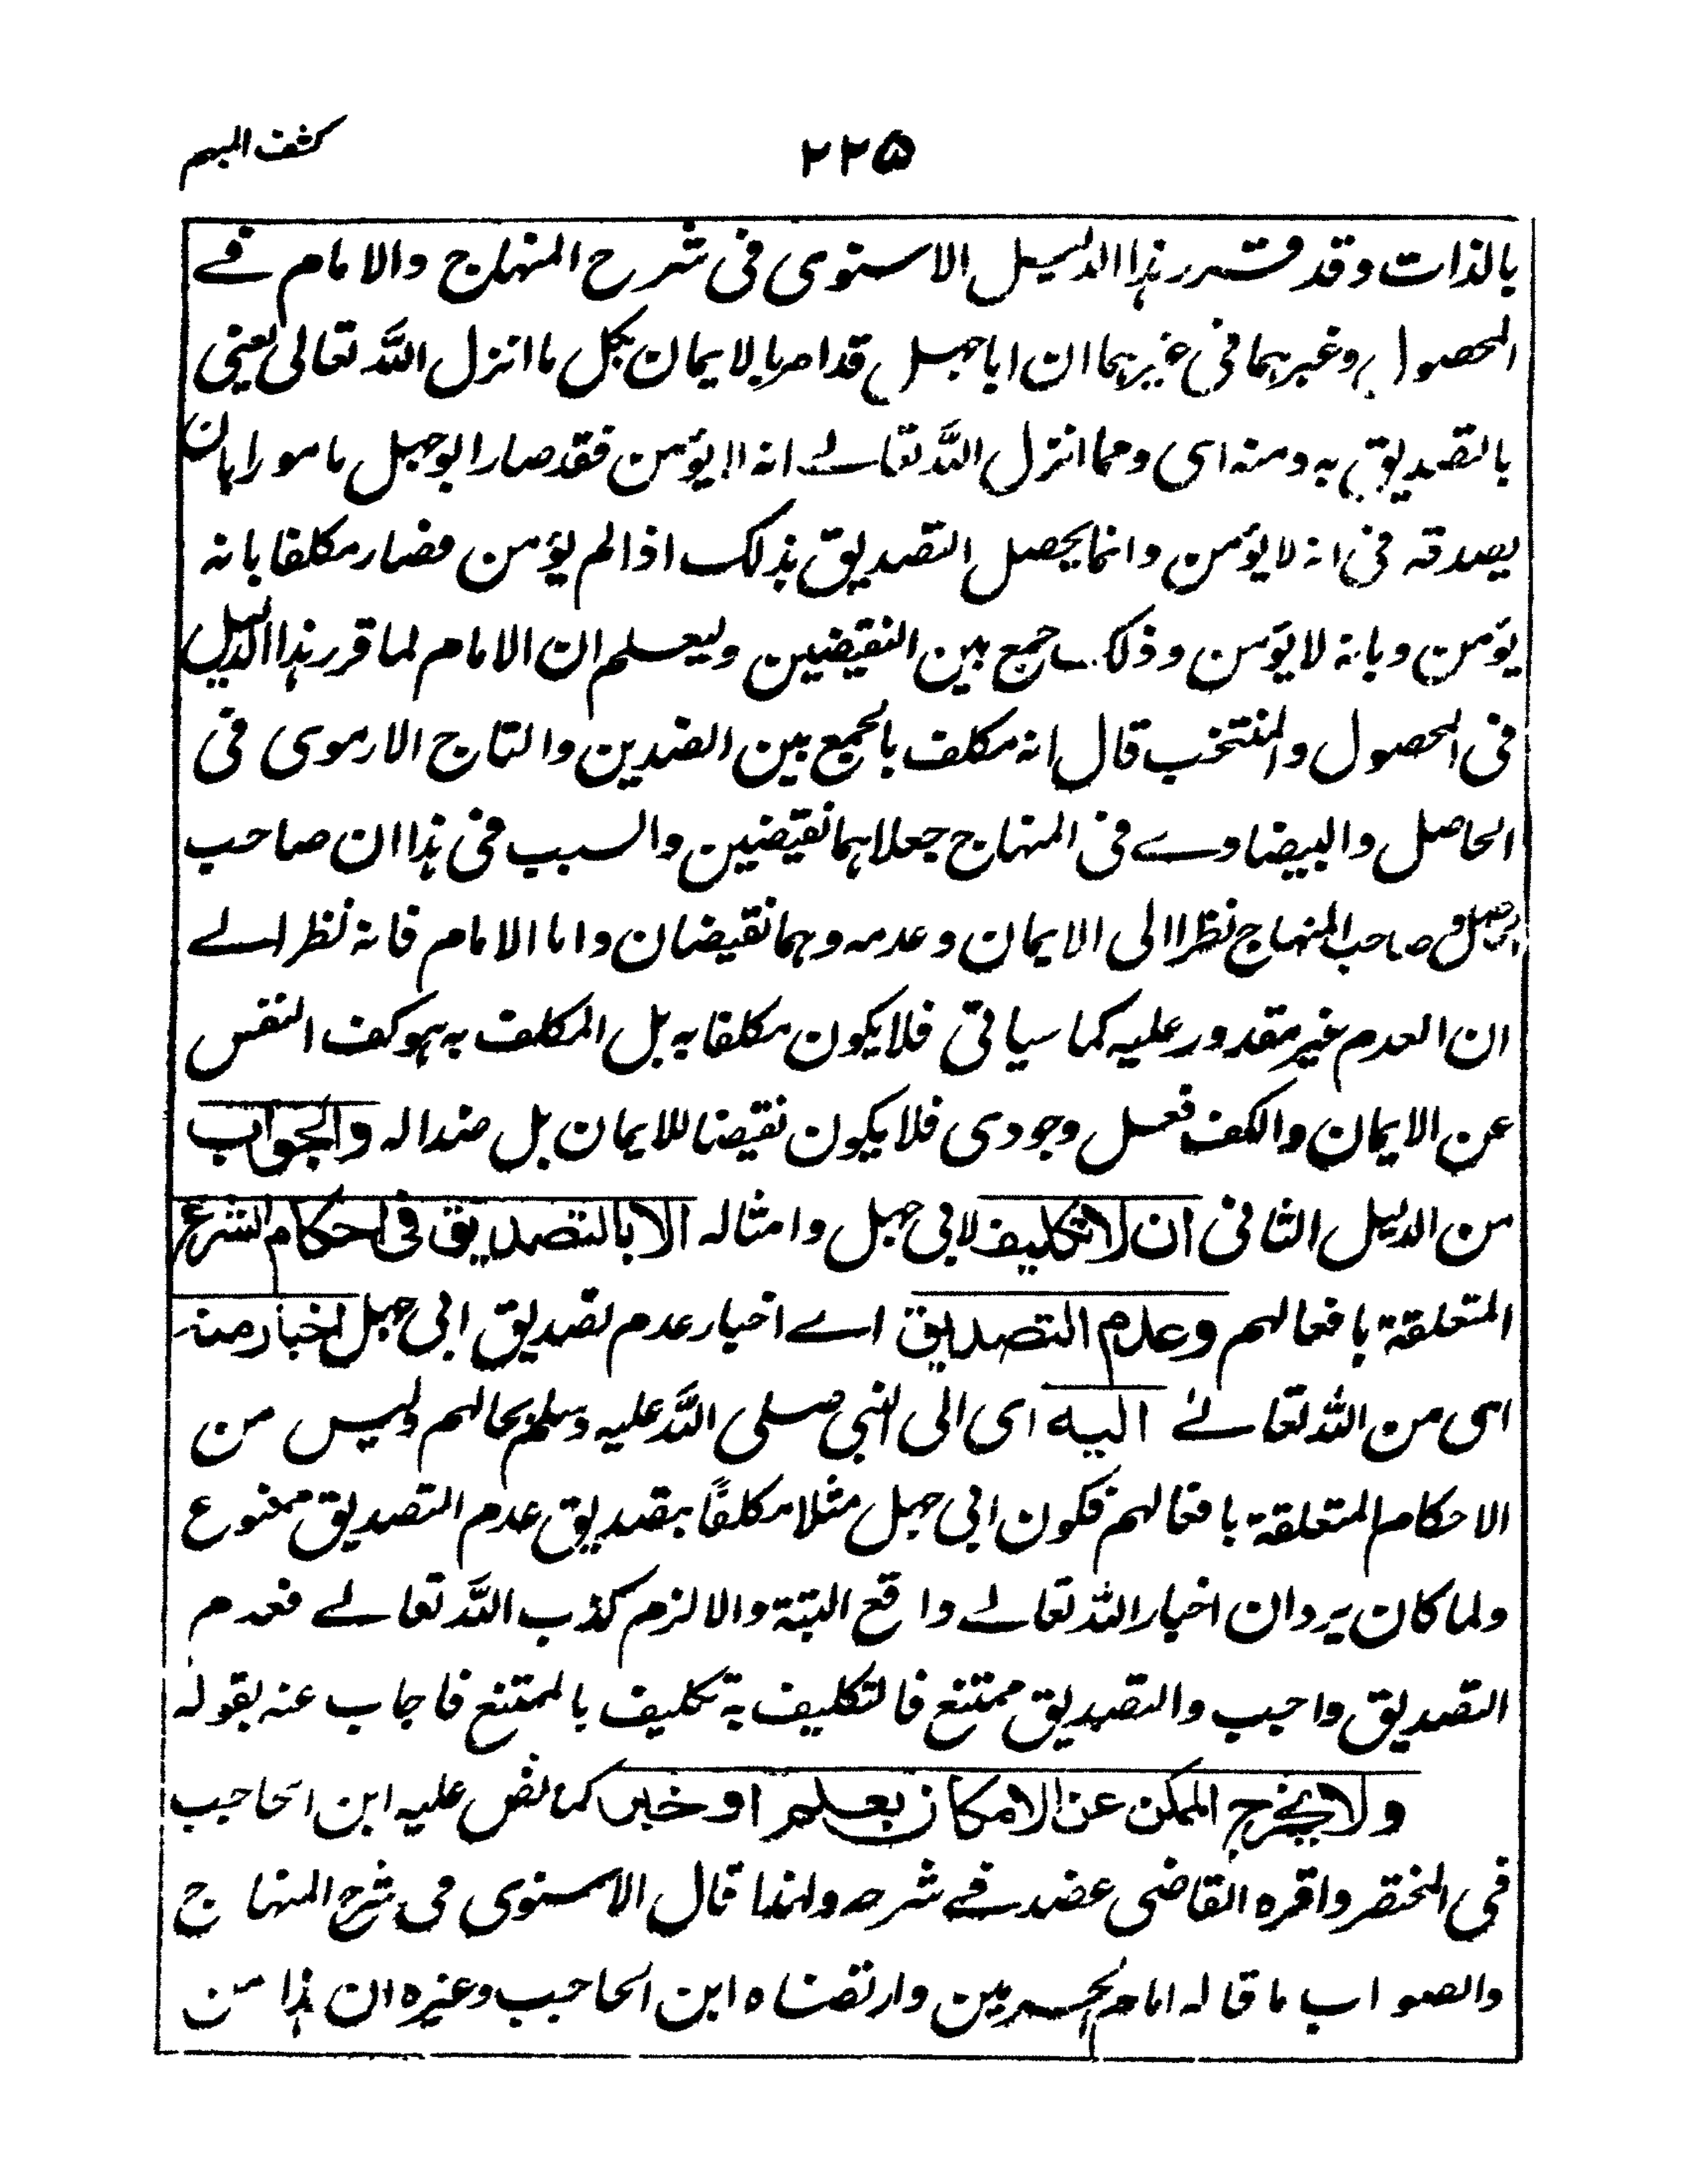 كشف المبهم
٢٢٥
بالذات وقد قرر هذا الدليل الاسنوى فى شرح المنهاج والامام فے
المحصول وغيرهما فى غيرهما ان اباجهل قد امر بالايمان بكل ما انزل الله تعالى يعنى
بالتصديق به ومنه اى ومما انزل الله تعالے انه لا يؤمن فقد صار ابوجهل مامورا بان
يصدقه فى انه لا يؤمن وانما يحصل التصديق بذلك اذا لم يؤمن فصار مكلفا بانه
يؤمن وبانه لا يؤمن وذلك جمع بين النقيضين وليعلم ان الامام لما قرر هذا الدليل
فى المحصول والمنتخب قال انه مكلف بالجمع بين الضدين والتاج الارموى فى
الحاصل والبيضاوے فى المنهاج جعلاهما نقيضين والسبب فى هذا ان صاحب
الحاصل وصاحب المنهاج نظرا الى الايمان وعدمه وهما نقيضان واما الامام فانه نظر الے
ان العدم غير مقدور عليه كما سياتى فلا يكون مكلفا به بل المكلف به هو كف النفس
عن الايمان والكف فعل وجودى فلا يكون نقيضا للايمان بل ضدا له والجواب
من الدليل الثانى ان لا تكليف لابى جهل وامثاله الا بالتصديق فى احكام الشرع
المتعلقة بافعالهم وعدم التصديق اے اخبار عدم تصديق ابى جهل اخبار منه
اى من الله تعالے اليه اى الى النبى صلى الله عليه وسلم بحالهم وليس من
الاحكام المتعلقة بافعالهم فكون ابى جهل مثلا مكلفًا بتصديق عدم التصديق ممنوع
ولما كان يرد ان اخبار الله تعالے واقع البتة والا لزم كذب الله تعالے فعدم
التصديق واجب والتصديق ممتنع فالتكليف به تكليف بالممتنع فاجاب عنه بقوله
ولا يخرج الممكن عن الامكان بعلم او خبر كما نص عليه ابن الحاجب
فى المختصر واقره القاضى عضد فے شرحه ولهذا قال الاسنوى فى شرح المنهاج
والصواب ما قاله امام الحرمين وارتضاه ابن الحاجب وغيره ان هذا من